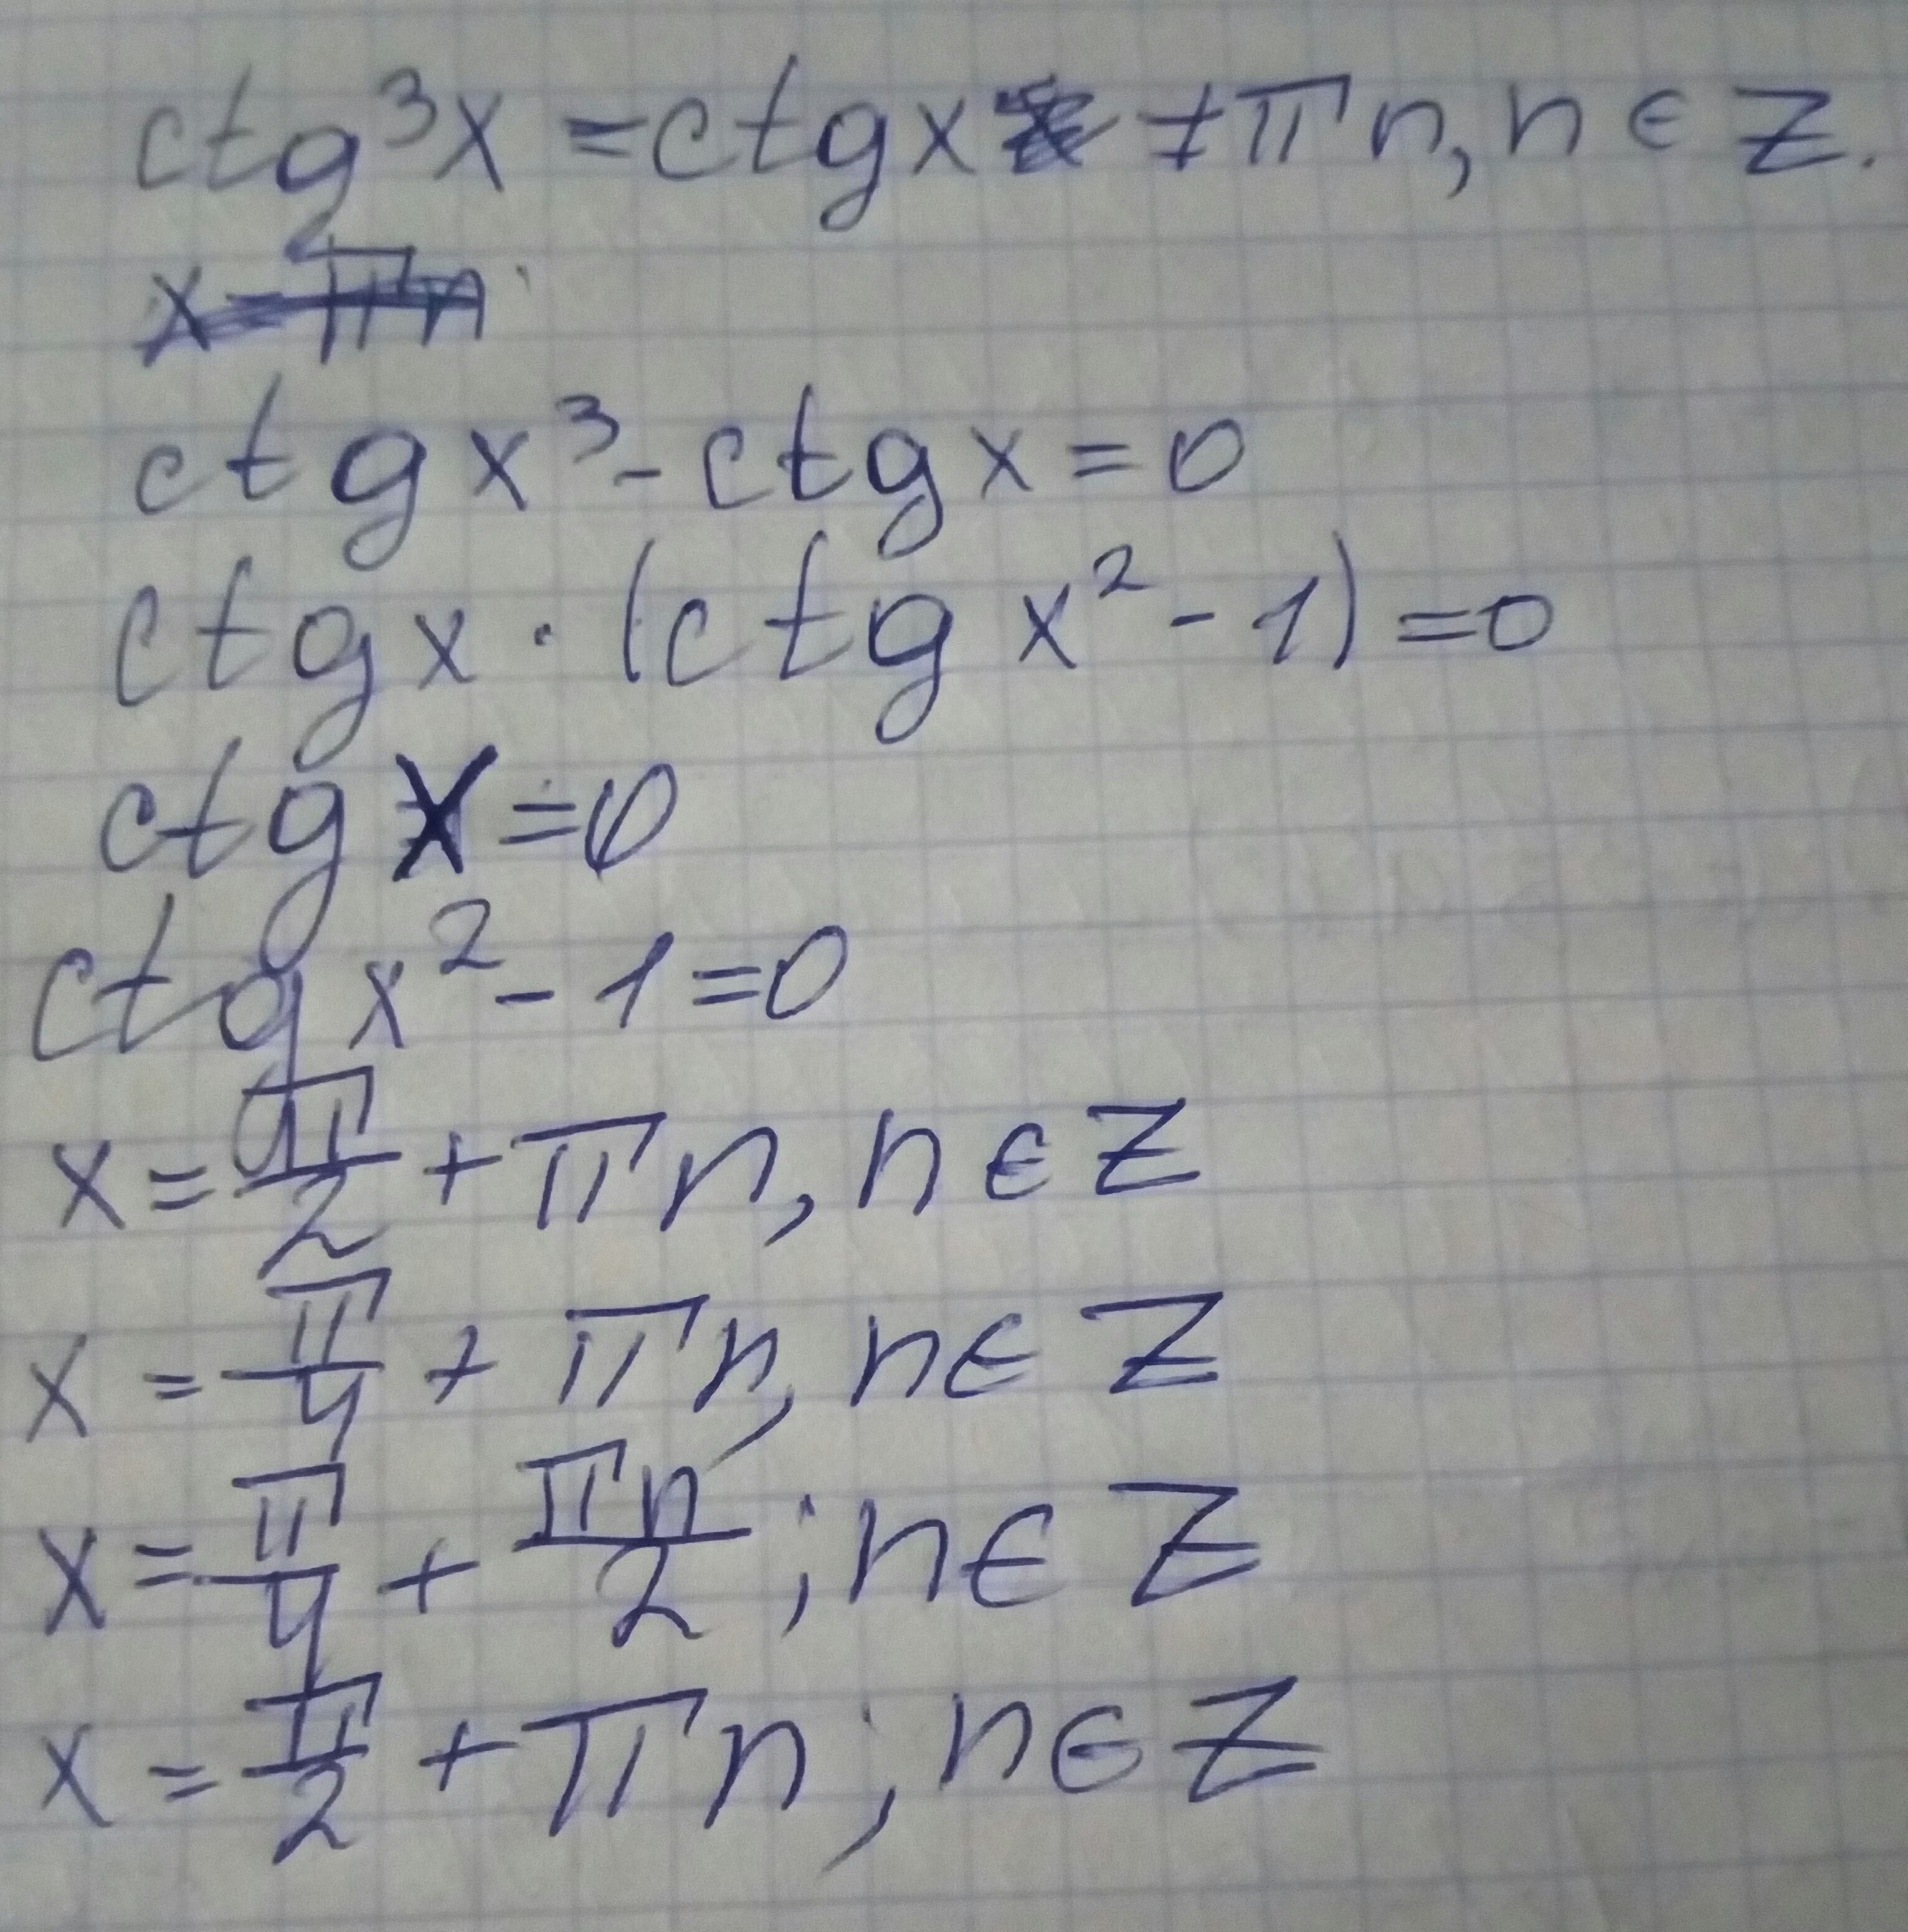 ctg³x = ctgx ≠ πn, n ∈ Z.
x = πn
ctg x³ - ctg x = 0
ctg x · (ctg x² - 1) = 0
ctg x = 0
ctg x² - 1 = 0
x = π/2 + πn, n ∈ Z
x = π/4 + πn, n ∈ Z
x = π/4 + πn/2 ; n ∈ Z
x = π/2 + πn ; n ∈ Z